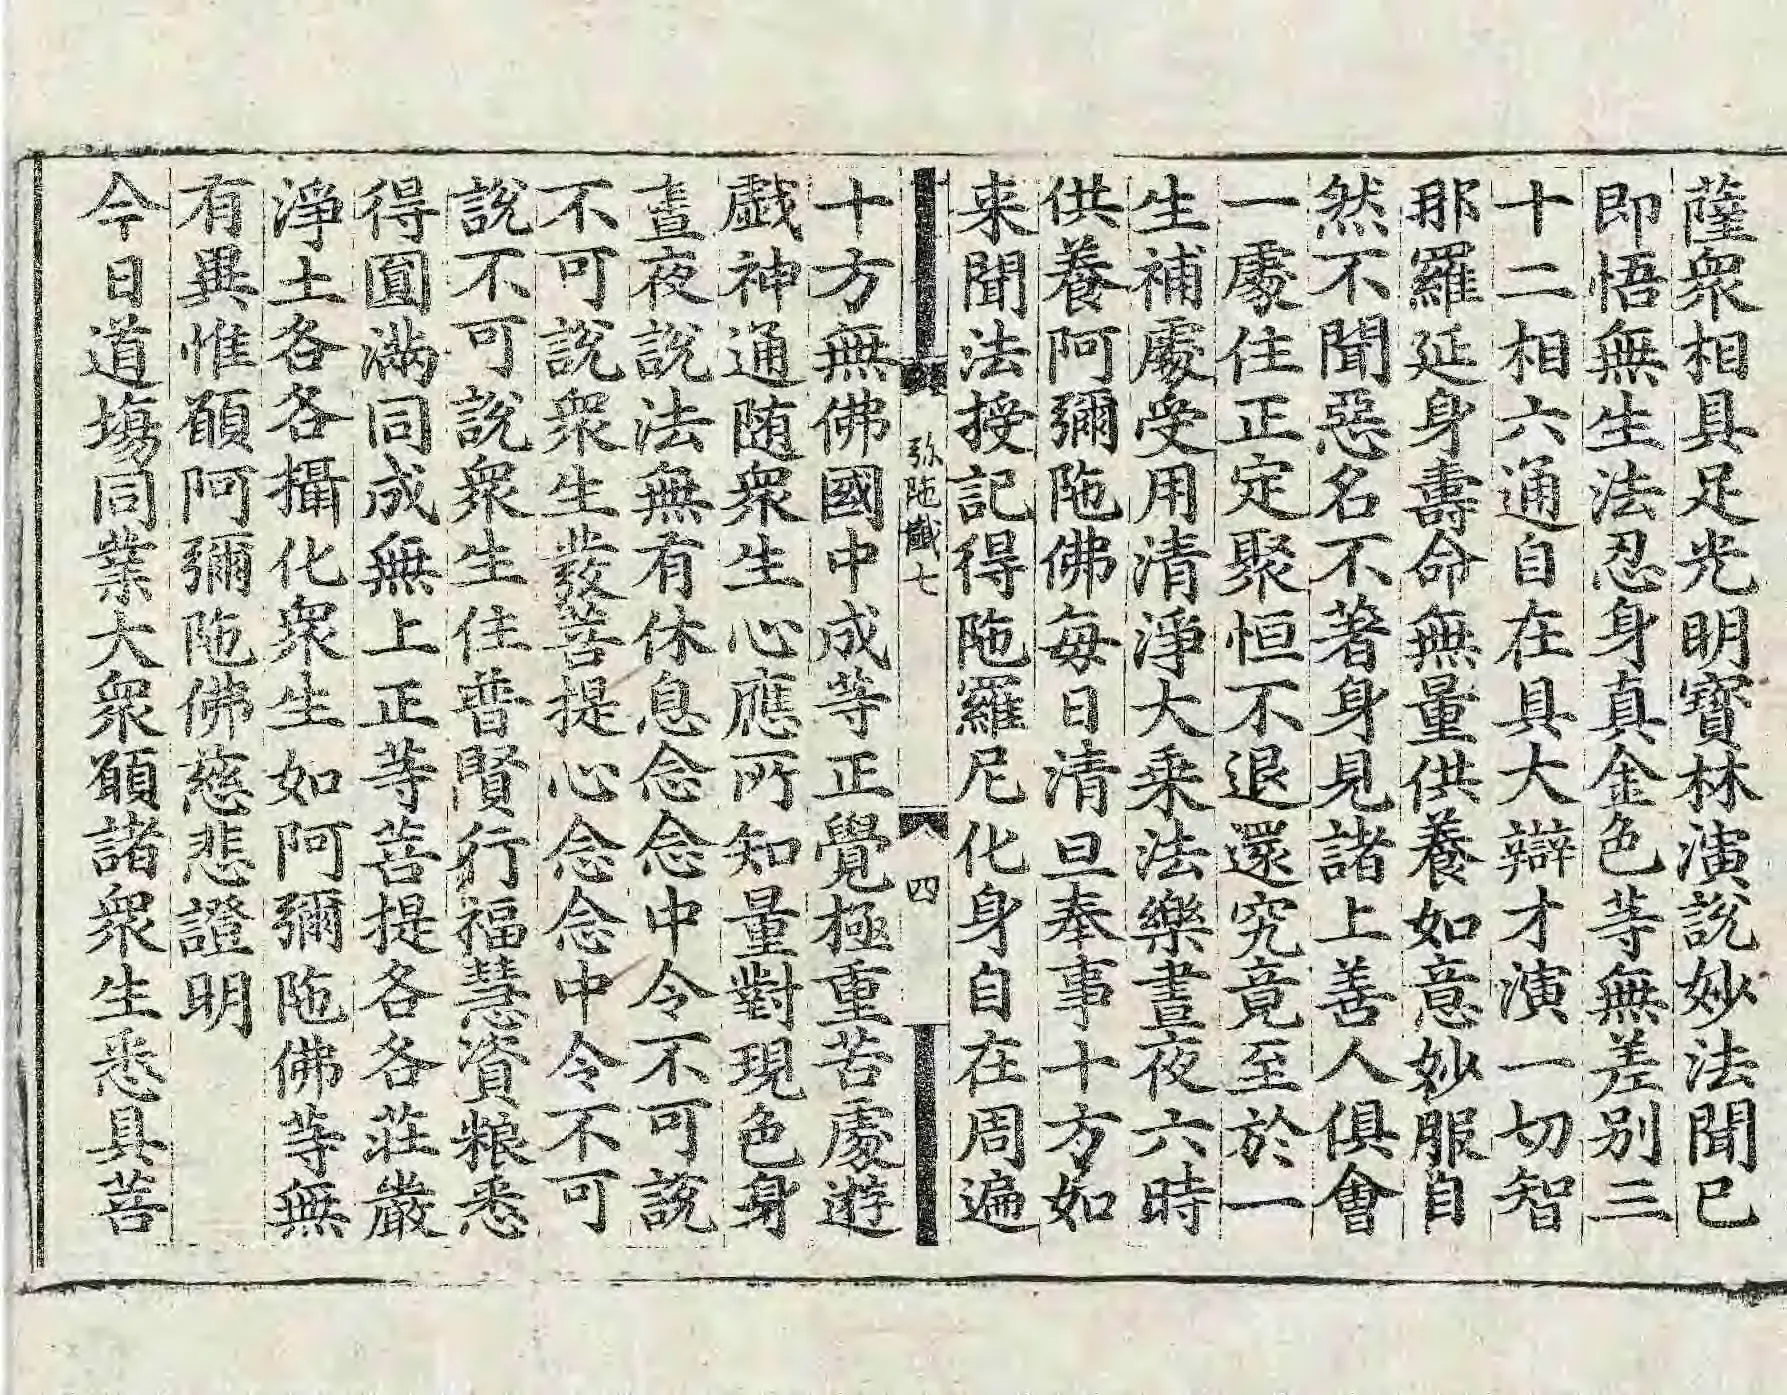 薩衆相具足光明寶林演說妙法聞已
即悟無生法忍身真金色等無差別三
十二相六通自在具大辯才演一切智
那羅延身壽命無量供養如意妙服自
然不聞惡名不著身見諸上善人俱會
一處住正定聚恒不退還究竟至於一
生補處受用清淨大乗法樂晝夜六時
供養阿彌陁佛毎日清旦奉事十方如
来聞法授記得陁羅尼化身自在周遍
弥陁懺七
四
十方無佛國中成等正覺極重苦處遊
戯神通随衆生心應所知量對現色身
晝夜說法無有休息念念中令不可說
不可說衆生發菩提心念念中令不可
說不可說衆生住普賢行福慧資粮悉
得圓滿同成無上正等菩提各各莊嚴
淨土各各攝化衆生如阿彌陁佛等無
有異惟願阿彌陁佛慈悲證明
今日道塲同業大衆願諸衆生悉具菩